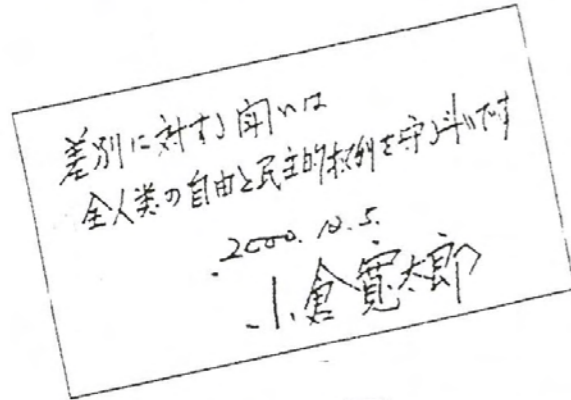 差別に対する闘いは
全人類の自由と民主的権利を守る斗いです
2000.10.5.
小倉寛太郎